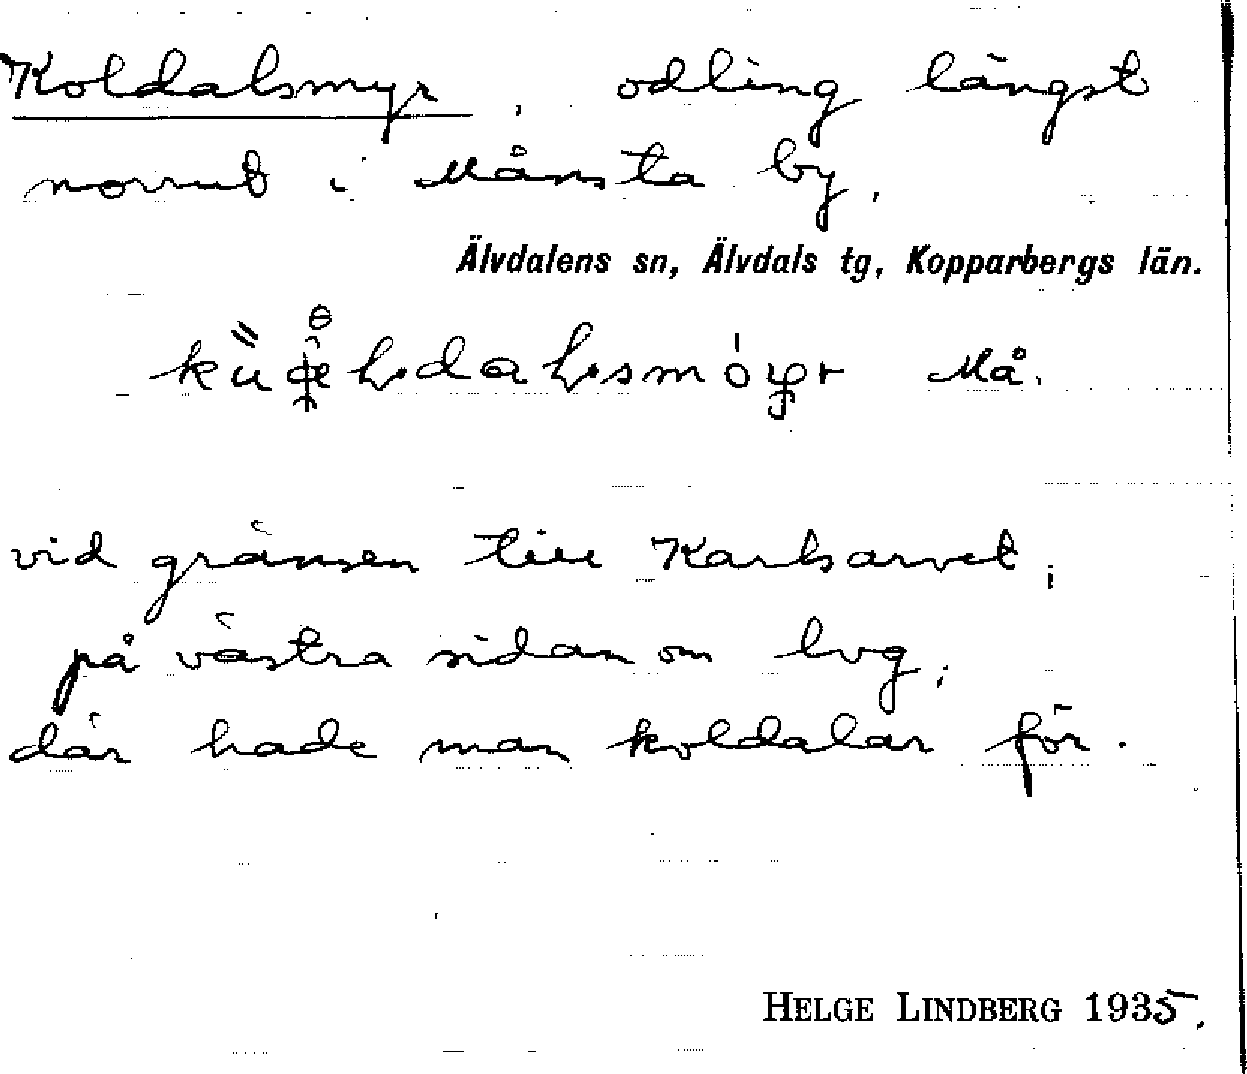 Koldalsmyr, odling längst
norrut i Månsta by,
Älvdalens sn, Älvdals tg, Kopparbergs län.
Må.
vid gränsen till Karlsarvet,
på västra sidan om lvg,
där hade man koldalar för.
HELGE LINDBERG 1935.